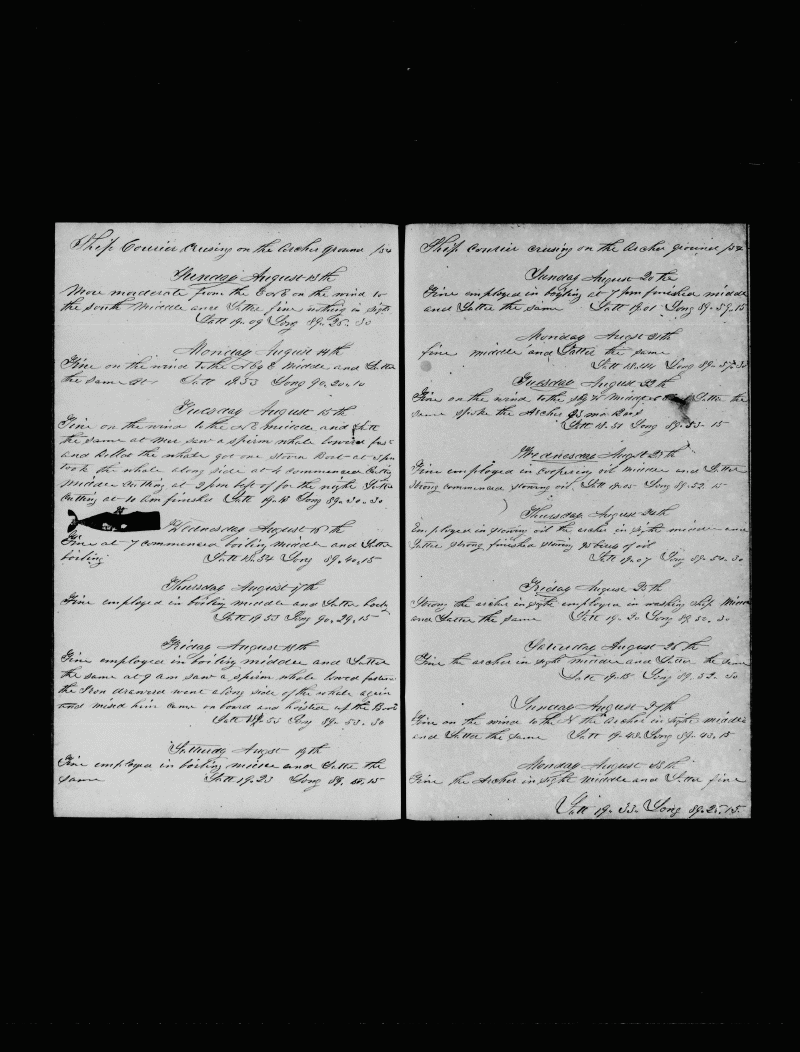 Ship Courier Cruising on the Archer Ground
Sunday August 13th
More moderate from the E on the wind to
the South Middle and Latter fine nothing in sight
Latt 19.09 Long 89.35.30
Monday August 14th
Fine on the wind to the Middle and Latter
the same Latt 18.53 Long 90.20.10
Tuesday August 15th
Fine on the wind to the Middle and Latt
the same at saw a sperm whale lowered fast
and killed the whale got one Stoven Boat at 3 pm
took the whale along side at 4 commenced cutting
Middle Cutting at 9 pm left of for the night Latter
Cutting at 10 am finished Latt 19.15 Long 89.30.30
Wednesday August 16th
Fine at 7 commenced boiling Middle and Latter
boiling Latt 18.54 Long 89.40.15
Thursday August 17th
Fine employed in boiling middle and Latter
Latt 19.53 Long 90.29.15
Friday August 18th
Fine employed in boiling middle and Latter
the same at 9 am saw a sperm whale lowed fasten
the Iron drawed went along side of the whale again
and mised him came on board and hoisted up the Boats
Latt 55 Long 89.53.30
Saturday August 19th
Fine employed in boiling midle and Latter the
same Latt 19.23 Long 89. .15
Ship Courier crusing on the Archer ground
Sunday August 20th
Fine employed in boiling at 7 pm finished middle
and Latter the same Latt 19.01 Long 89.59.15
Monday August 21th
fine middle and Latter the same
Latt 18.44 Long 89.57.30
Tuesday August 22th
Fine on the wind to the Middle and Latter the
same spoke the Archer
Latt 18.51 Long 89.53.15
Wednesday August 23th
Fine employed in coopering oil middle and Latter
strong commenced stowing oil Latt 19.05 Long 89.52.15
Thursday August 24th
Employed in stowing oil the archer in sight middle and
Latter strong finished stowing 95 bbls of oil
Latt 19.07 Long 89.54.30
Friday August 25th
Strong the archer in sight employed in washing ship Middle
and Latter the same Latt 19.20 Long 89.50.30
Saturday August 26th
Fine the archer in sight middle and Latter the same
Latt 19.15 Long 89.52.30
Sunday August 27th
Fine on the wind to the N the Archer in sight middle
and Latter the same Latt 19.43 Long 89.43.15
Monday August 28th
Fine the Archer in sight Middle and Latter fine
Latt 19.33 Long 89.25.15